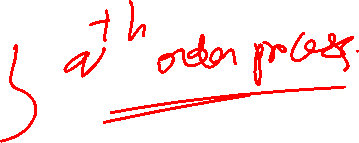 a^th order process.